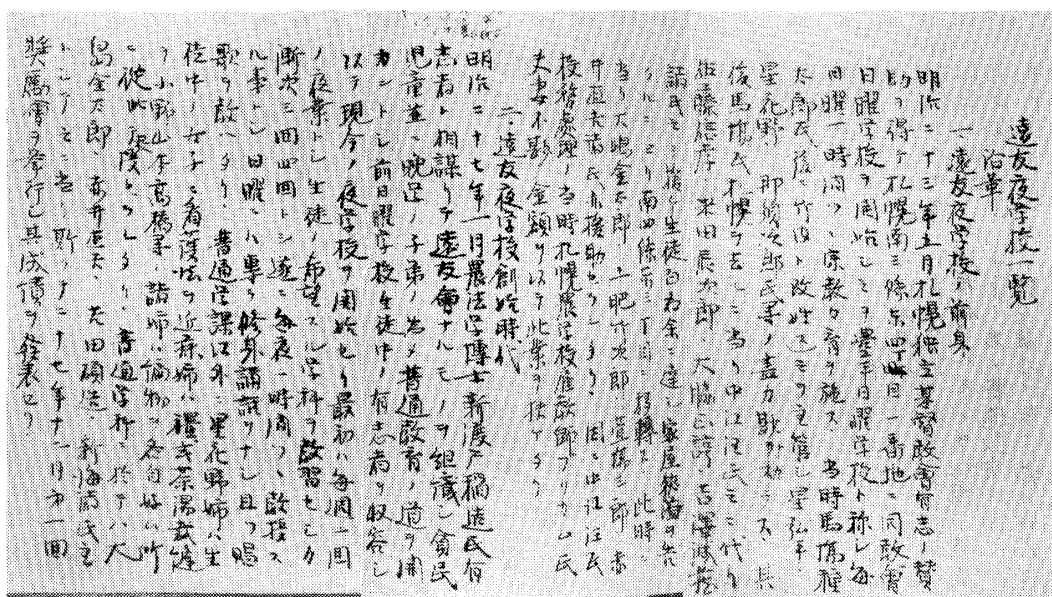 遠友夜学校一覧
沿革
一、遠友夜学校ノ前身
明治二十三年五月札幌独立基督教会有志ノ賛
助ヲ得テ札幌南三條東四丁目一番地ニ同教会
日曜学校ヲ開始シ之ヲ豊平日曜学校ト称シ毎
日曜一時間ツヽ宗教々育ヲ施ス 当時馬橋種
太郎氏 後ニ竹内ト改姓 之ヲ主管シ 星弘平
星花野 即修次郎氏等ノ尽力 其
後馬橋氏札幌ヲ去ルニ当リ中江汪氏之ニ代リ
佐藤信彦 米田辰太郎 大脇正諄
諸氏之ヲ 生徒百有余ニ達シ家屋狭
ルニヨリ南四條東三丁目ニ移転ス 此時ニ
当リ大島金太郎 土肥竹次郎 三郎 赤
井直夫諸氏ノ援助 中江汪氏
校務処理ノ 当時札幌農学校 氏
夫妻不尠金額ヲ以テ此業ヲ扶ケタリ
二、遠友夜学校創始時代
明治二十七年一月農法学博士新渡戸稲造氏有
志者ト相謀リテ遠友会ナルモノヲ組織シ貧民
児童並ニ晩学ノ子弟ノ為メ普通教育ノ道ヲ開
カントシ前日曜学校生徒中ノ有志者ヲ収容シ
以テ現今ノ夜学校ヲ開始セリ最初ハ毎週二回
ノ夜業トシ生徒ノ希望スル学科ヲ教習セシカ
漸次三回四回トシ遂ニ毎夜一時間ツヽ教授ス
ル事トシ日曜ニハ専ラ修身講話ヲナシ且ツ唱
歌ヲ教ハタリ 普通学課以外ニ星花野姉ハ生
徒中ノ女子ニ看護法ヲ近藤姉ハ礼式茶湯裁縫
ヲ小野山本高橋等ノ諸姉ハ編物ヲ各自好ム所
ニ従ヒ教授セラレタリ 普通学科ニ於テハ大
島金太郎、赤井直夫、太田碩造、新海 諸氏主
トシテ之ニ当レリ 斯クテ二十七年十一月第一回
奨励会ヲ挙行シ其成績ヲ発表セリ